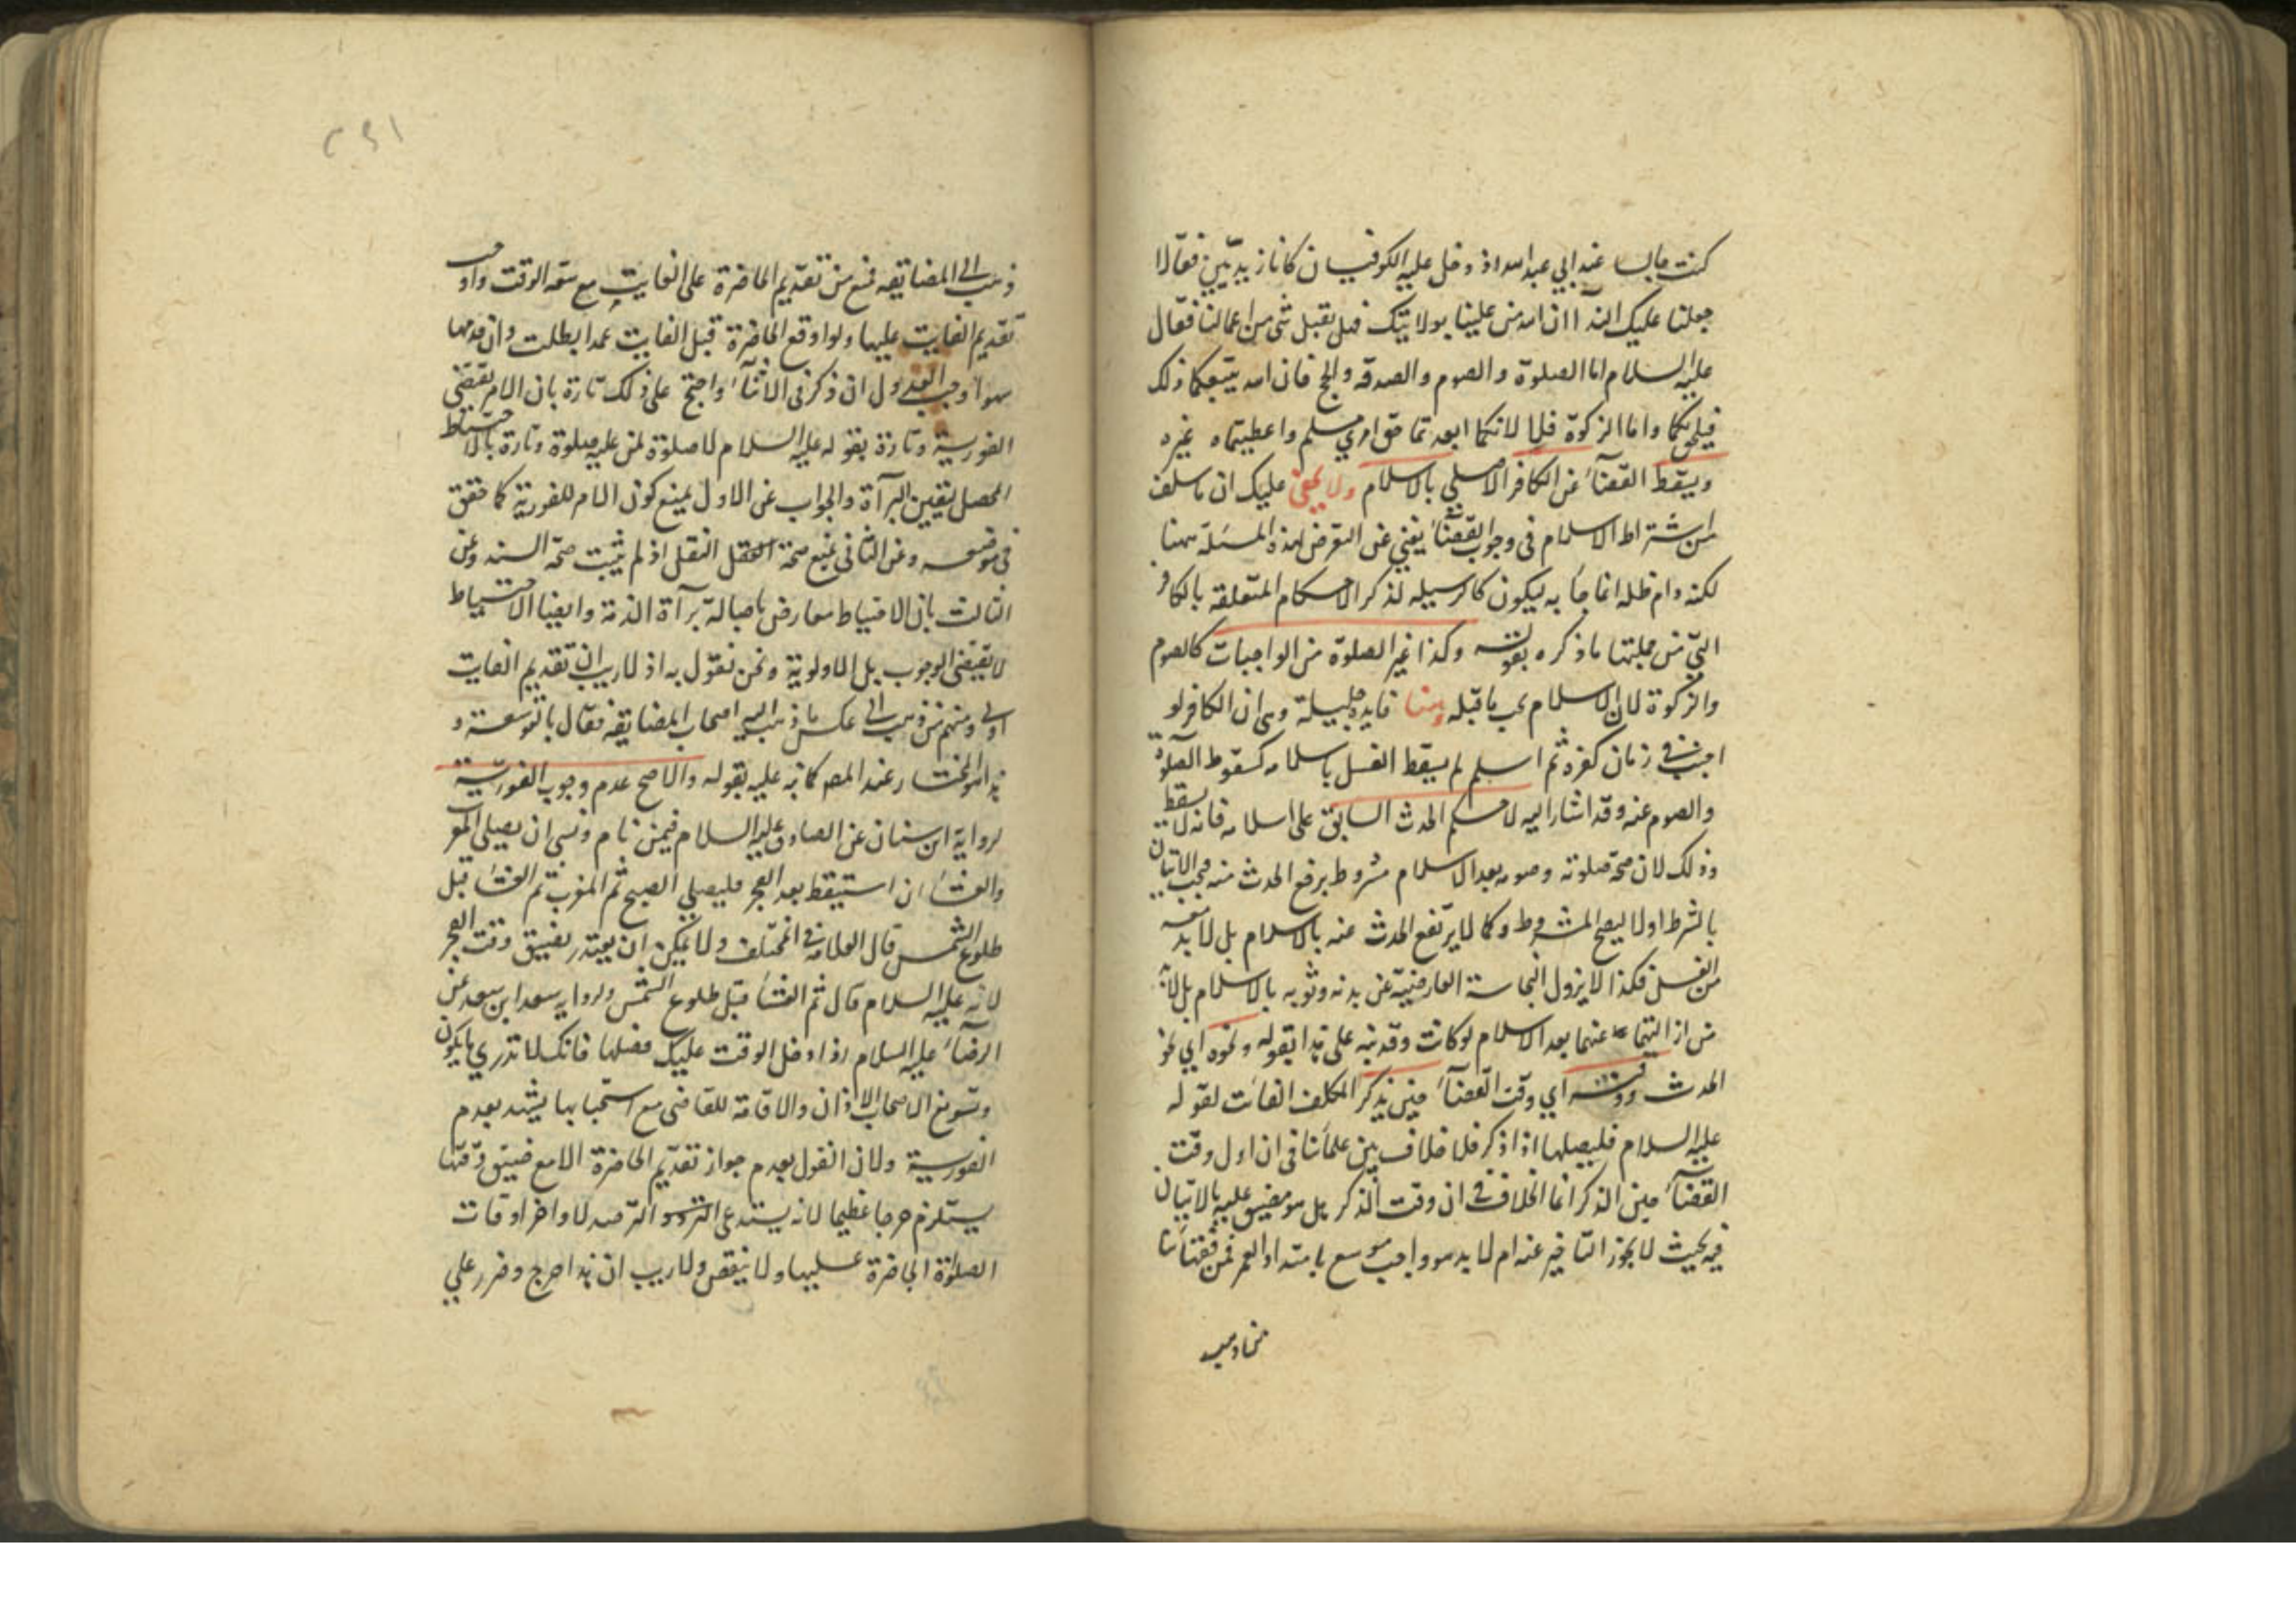 كنت جالسا عند ابي عبد الله اذ دخل عليه الكوفيان كانا زيديين فقالا
جعلنا عليك الفدآ ان الله من علينا بولايتك فهل يقبل شى من اعمالنا فقال
عليه السلام اما الصلوة والصوم والصدقه والحج فان الله يتبعكما ذلك
فيلحق بكما واما الزكوة فلا لانكما ابعدتما حق امرئ مسلم واعطيتماه غيره
ويسقط القضآء عن الكافر الاصلي بالاسلام ولا يخفى عليك ان ما سلف
من اشتراط الاسلام فى وجوب القضآء يغني عن التعرض لهذه المسئلة ههنا
لكنه دام ظله انما جآء به ليكون كالوسيله لذكر الاحكام المتعلقه بالكافر
التي من جملتها ما ذكره بقوله وكذا غير الصلوة من الواجبات كالصوم
والزكوة لان الاسلام يجب ما قبله وهنا فايدة جليلة وهى ان الكافر لو
اجنب في زمان كفره ثم اسلم لم يسقط الغسل باسلامه كسقوط الصلوة
والصوم عنه وقد اشار اليه لا حكم الحدث السابق على اسلامه فانه لا يسقط
وذلك لان صحة صلوته وصومه بعد الاسلام مشروط برفع الحدث منه فيجب الاتيان
بالشرط اولا ليصح المشروط وكما لا يرتفع الحدث عنه بالاسلام بل لا بد معه
من الغسل فكذا لا يزول النجاسة العارضية عن بدنه وثوبه بالاسلام بل لا بد
من ازالتهما عنهما بعد الاسلام لو كانت وقد نبه على هذا بقوله ونحوه اي نحو
الحدث ووقته اي وقت القضآء حين يذكر المكلف الفائت لقوله
عليه السلام فليصلها اذا ذكر فلا خلاف بين علمآئنا فى ان اول وقت
القضآء حين الذكر انما الخلاف في ان وقت الذكر هل هو مضيق عليه بالاتيان
فيه بحيث لا يجوز التاخير عنه ام لا بل هو واجب موسع بامتداد العمر فمن فقهآئنا
من ذهب
ذهب الى المضايقه فمنع من تقديم الحاضرة على الفايت مع سعة الوقت واوجب
تقديم الفايت عليها ولو اوقع الحاضرة قبل الفايت عمدا بطلت وان قدمها
سهوا وجب العدول ان ذكر فى الاثنآء واحتج على ذلك تارة بان الامر يقتضى
الفورية وتارة بقوله عليه السلام لا صلوة لمن عليه صلوة وتارة بالاحتياط
المحصل ليقين البرآة والجواب عن الاول بمنع كون الامر للفورية كما حقق
فى موضعه وعن الثانى بمنع صحة النقل اذ لم يثبت صحة السند وعن
الثالث بان الاحتياط معارض باصالة برآة الذمة وايضا الاحتياط
لا يقتضى الوجوب بل الاولوية ونحن نقول به اذ لا ريب ان تقديم الفايت
اولى ومنهم من ذهب الى عكس ما ذهب اليه اصحاب المضايقه فقال بالتوسعة و
هذا هو المختار عند المصـ كما نبه عليه بقوله والاصح عدم وجوب الفورية
لرواية ابن سنان عن الصادق عليه السلام فيمن نام ونسى ان يصلي المغرب
والعشآء ان استيقظ بعد الفجر فليصلي الصبح ثم المغرب ثم العشآء قبل
طلوع الشمس قال العلامة في المختلف ولا يمكن ان يعتذر بضيق وقت الفجر
لانه عليه السلام قال ثم العشآء قبل طلوع الشمس ولرواية سعد ابن سعد عن
الرضآء عليه السلام اذا دخل الوقت عليك فصلها فانك لا تدري ما يكون
وتسويغ الاصحاب الاذان والاقامة للقاضى مع استحبابهما يشهد بعدم
الفورية ولان القول بعدم جواز تقديم الحاضرة الا مع ضيق وقتها
يستلزم حرجا عظيما لانه يستدعى الترصد لاواخر اوقات
الصلوة الحاضرة عليها ولا ينقص ولا ريب ان هذا حرج وضرر على